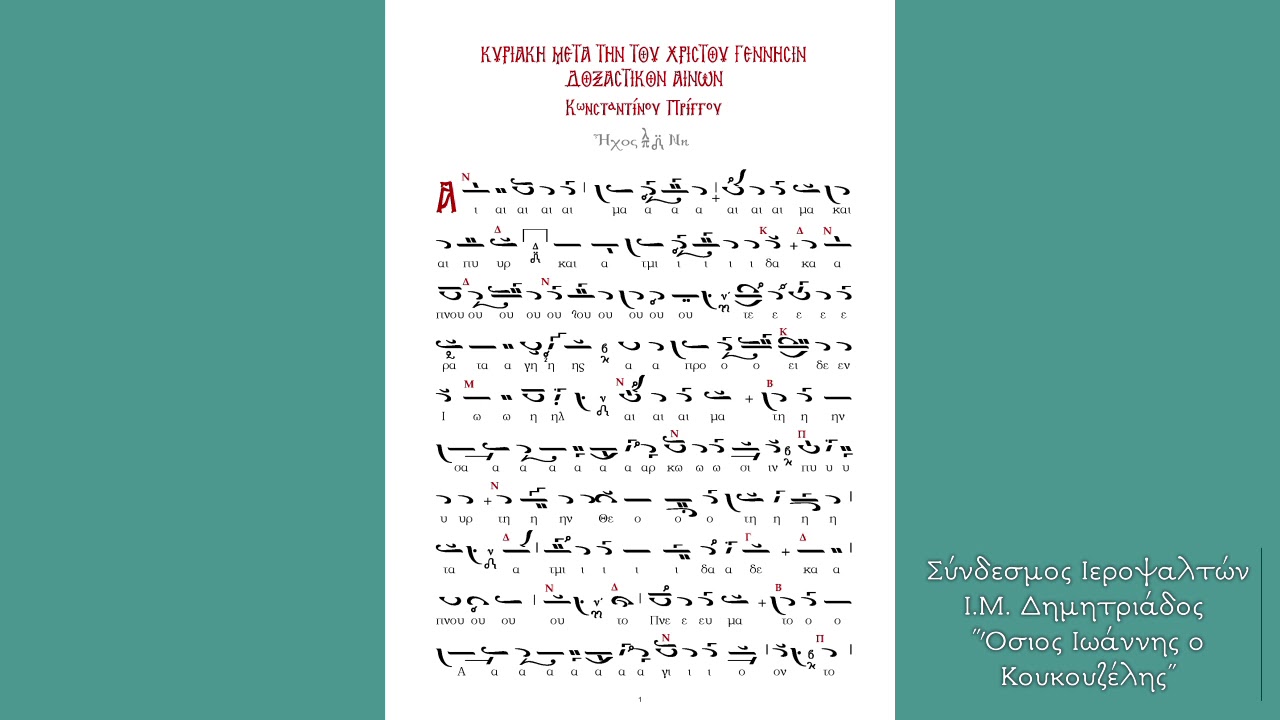 ΚΥΡΙΑΚΗ ΜΕΤΑ ΤΗΝ ΤΟΥ ΧΡΙΣΤΟΥ ΓΕΝΝΗΣΙΝ
ΔΟΞΑΣΤΙΚΟΝ ΑΙΝΩΝ
Κωνσταντίνου Πρίγγου
Ἦχος Νη
Ν
Α ι αι αι αι αι μα α α α αι αι αι μα και
Δ Κ Δ Ν
αι πυ υρ και α τμι ι ι ι ι δα κα α
Δ Ν
πνου ου ου ου ου ου ου ου ου τε ε ε ε ε
Κ
ρα τα α γη η ης α α προ ο ο ει δε εν
Μ Ν Β
Ι ω ω η ηλ αι αι αι μα τη η ην
Ν Π
οα α α α α α α αρ κω ω ω σι ιν πυ υ υ
Ν
υ υρ τη η ην Θε ο ο ο τη η η η
Δ Γ Δ
τα α τμι ι ι ι ι δα α δε κα α
Ν Δ Β
πνου ου ου ου το Πνε ε ευ μα το ο ο
Ν Π
Α α α α α α α γι ι ι ο ον το
1
Σύνδεσμος Ιεροψαλτών
Ι.Μ. Δημητριάδος
"Όσιος Ιωάννης ο
Κουκουζέλης"